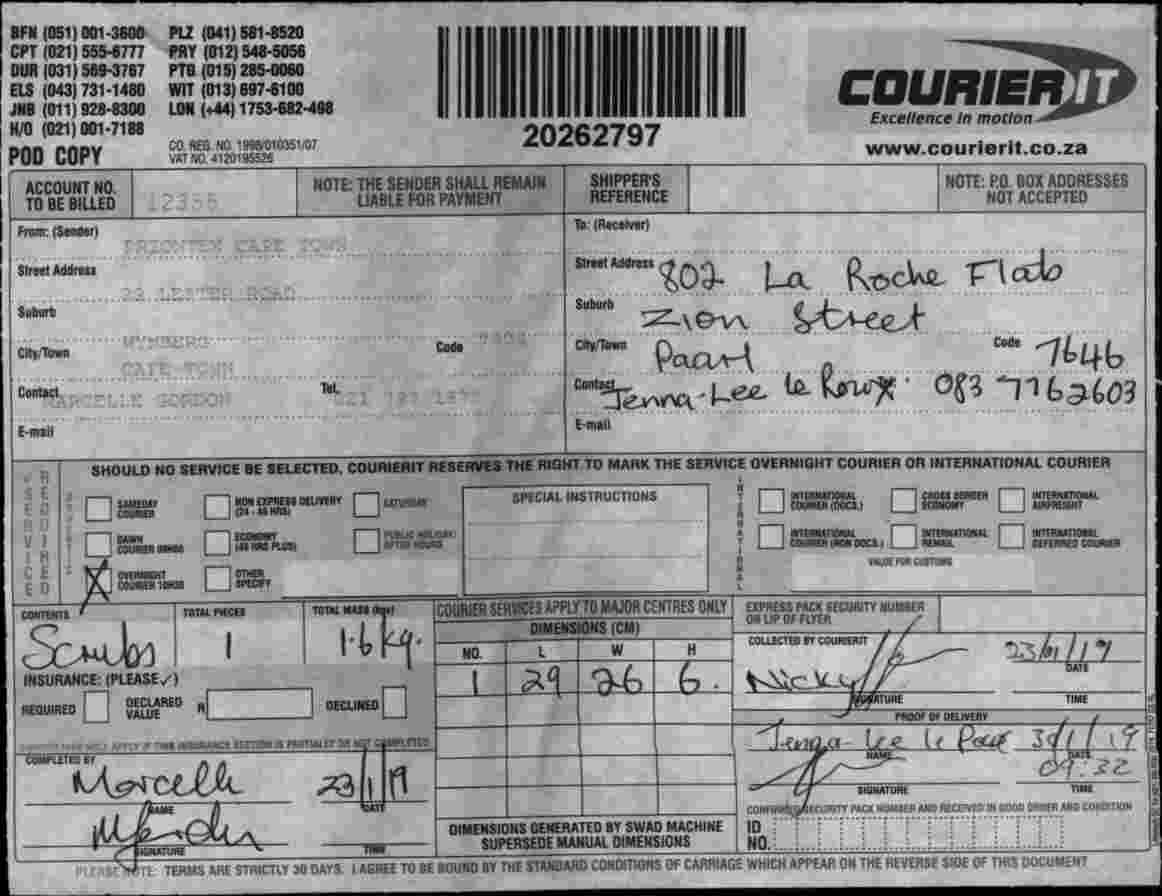 BFN (051) 001-3600 PLZ (041) 581-8520
CPT (021) 555-6777 PRY (012) 548-5056
DUR (031) 569-3767 PTG (015) 285-0060
ELS (043) 731-1480 WIT (013) 697-6100
JNB (011) 928-8300 LON (+44) 1753-682-498
H/O (021) 001-7188
CO. REG. NO. 1998/010351/07
VAT NO. 4120195526
POD COPY
20262797
COURIERIT
Excellence in motion
www.courierit.co.za
ACCOUNT NO. TO BE BILLED 12355
NOTE: THE SENDER SHALL REMAIN LIABLE FOR PAYMENT
SHIPPER'S REFERENCE
NOTE: P.O. BOX ADDRESSES NOT ACCEPTED
From: (Sender) CAPE TOWN
Street Address 23 LESTER ROAD
Suburb WYNBERG
City/Town CAPE TOWN Code
Contact MARCELLE GORDON Tel. 021 797
E-mail
To: (Receiver)
Street Address 802 La Roche Flats
Suburb Zion Street
City/Town Paarl Code 7646
Contact Jenna-Lee le Roux 083 7762603
E-mail
SHOULD NO SERVICE BE SELECTED, COURIERIT RESERVES THE RIGHT TO MARK THE SERVICE OVERNIGHT COURIER OR INTERNATIONAL COURIER
SERVICE REQUIRED
DOMESTIC
SAMEDAY COURIER
NON EXPRESS DELIVERY (24 - 48 HRS)
SATURDAY
DAWN COURIER 08H00
ECONOMY (48 HRS PLUS)
PUBLIC HOLIDAY/ AFTER HOURS
X OVERNIGHT COURIER 10H30
OTHER SPECIFY
SPECIAL INSTRUCTIONS
INTERNATIONAL
INTERNATIONAL COURIER (DOCS.)
CROSS BORDER ECONOMY
INTERNATIONAL AIRFREIGHT
INTERNATIONAL COURIER (NON DOCS.)
INTERNATIONAL REMAIL
INTERNATIONAL DEFERRED COURIER
VALUE FOR CUSTOMS
CONTENTS Scrubs
TOTAL PIECES 1
TOTAL MASS (kgs) 1.6 kg.
INSURANCE: (PLEASE ✓)
REQUIRED
DECLARED VALUE R
DECLINED
COMPLETED BY
Marcelle 23/1/19
NAME DATE
SIGNATURE TIME
COURIER SERVICES APPLY TO MAJOR CENTRES ONLY
DIMENSIONS (CM)
NO. L W H
1 29 26 6.
DIMENSIONS GENERATED BY SWAD MACHINE SUPERSEDE MANUAL DIMENSIONS
EXPRESS PACK SECURITY NUMBER ON LIP OF FLYER
COLLECTED BY COURIERIT
Nicky 23/01/19
DATE
SIGNATURE TIME
PROOF OF DELIVERY
Jenna-Lee le 1/19
NAME DATE
09:32
SIGNATURE TIME
CONFIRMED SECURITY PACK NUMBER AND RECEIVED IN GOOD ORDER AND CONDITION
ID NO.
PLEASE NOTE: TERMS ARE STRICTLY 30 DAYS. I AGREE TO BE BOUND BY THE STANDARD CONDITIONS OF CARRIAGE WHICH APPEAR ON THE REVERSE SIDE OF THIS DOCUMENT